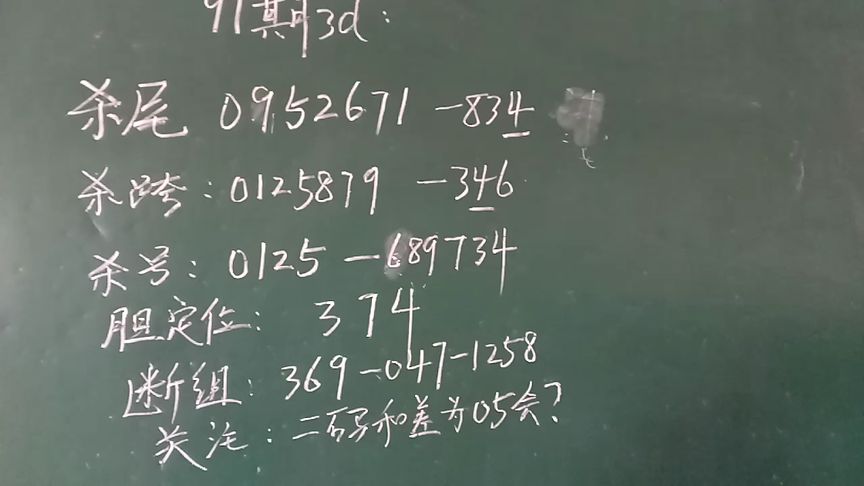 91期3d:
杀尾 0952671 -834
杀跨:0125879 -346
杀号:0125-689734
胆定位: 374
断组:369-047-1258
关注:二码和差为05会?